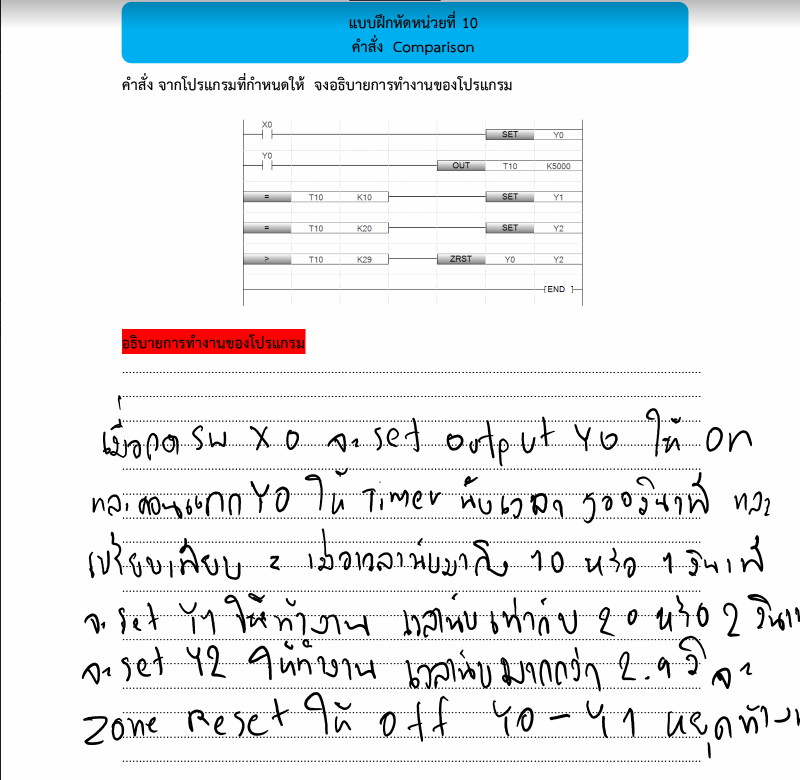 แบบฝึกหัดหน่วยที่ 10
คำสั่ง Comparison
คำสั่ง จากโปรแกรมที่กำหนดให้ จงอธิบายการทำงานของโปรแกรม
X0
SET Y0
Y0
OUT T10 K5000
= T10 K10 SET Y1
= T10 K20 SET Y2
> T10 K29 ZRST Y0 Y2
[END ]
อธิบายการทำงานของโปรแกรม
เมื่อกด SW X0 จะ set output Y0 ให้ on
และคอนแทค Y0 ให้ Timer นับเวลา 500วินาที และ
เปรียบเทียบ = เมื่อเวลานับมาถึง 10 หรือ 1 วินาที
จะ set Y1 ให้ทำงาน เวลานับเท่ากับ 20 หรือ 2
จะ set Y2 ให้ทำงาน เวลานับมากกว่า 2.9 วิ จะ
Zone Reset ให้ off Y0 - Y1 หยุด